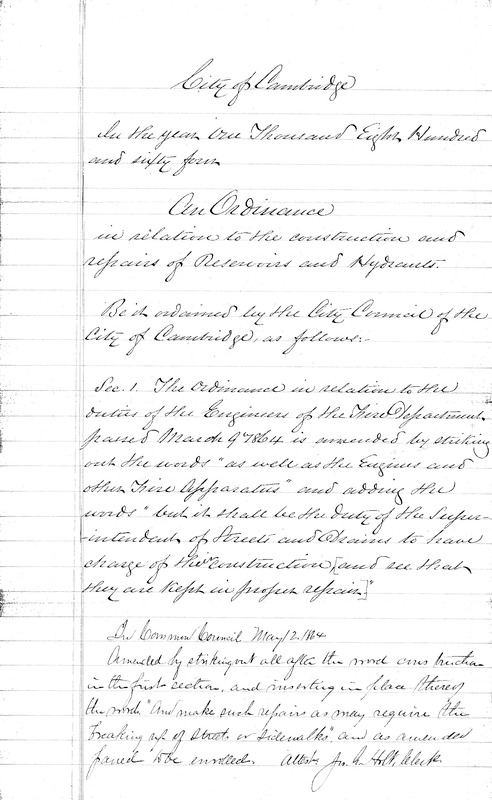 City of Cambridge
In the year one Thousand Eight Hundred
and sixty four
An Ordinance
in relation to the construction and
repairs of Reservoirs and Hydrants.
Be it ordained by the City Council of the
City of Cambridge, as follows:-
Sec. 1. The Ordinance in relation to the
duties of the Engineers of the Fire Department
passed March 9 1864 is amended by striking
out the words "as well as the Engines and
other Fire Apparatus" and adding the
words "but it shall be the duty of the Super-
-intendent of Streets and Drains to have
charge of their construction, [and see that
they are kept in proper repair]"
In Common Council May 12. 1864
Amended by striking out all after the word construction
in the first section, and inserting in place thereof
the words "And make such repairs as may require the
breaking up of streets or sidewalks" and as amended
passed to be enrolled. Attest, Jn. G. Holt, Clerk